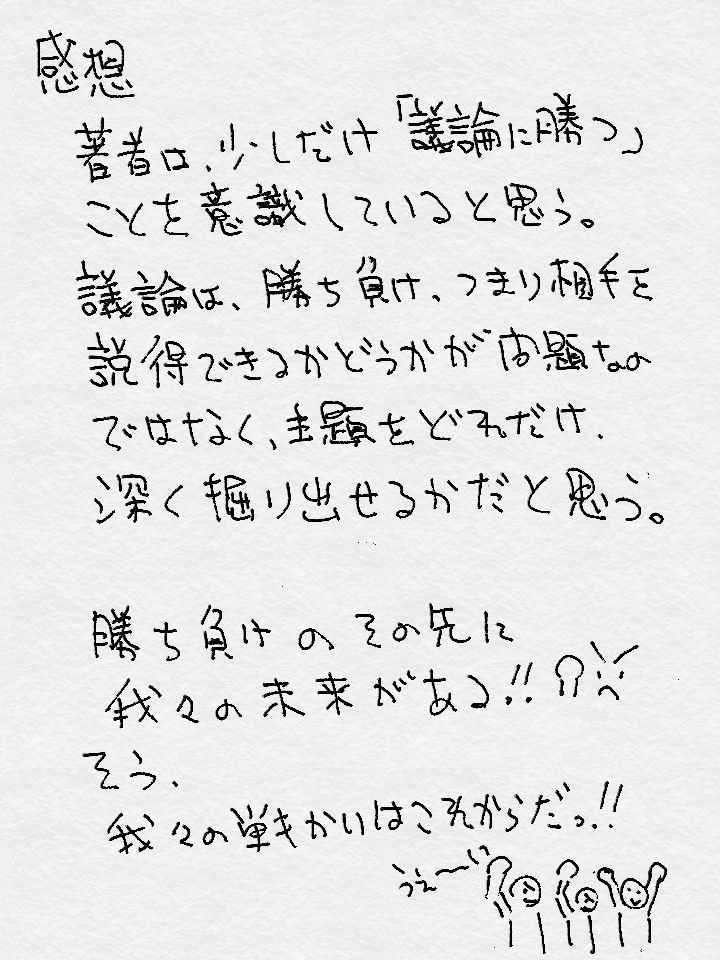 感想
著者は、少しだけ「議論に勝つ」
ことを意識していると思う。
議論は、勝ち負け、つまり相手を
説得できるかどうかが問題なの
ではなく、主題をどれだけ、
深く掘り出せるかだと思う。
勝ち負けのその先に
我々の未来がある!!
そう、
我々の戦かいはこれからだっ!!
うぇ〜い